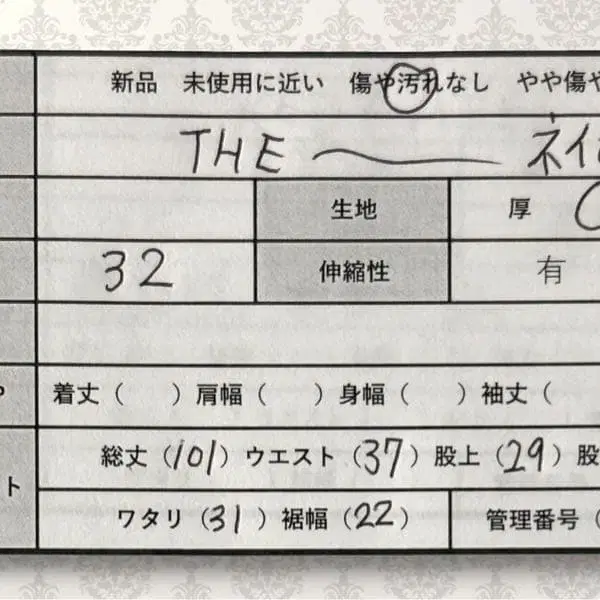 新品 未使用に近い 傷や汚れなし やや傷や
THE ネイ
生地 厚
32 伸縮性 有
着丈( )肩幅( )身幅( )袖丈(
ト 総丈(101)ウエスト(37)股上(29)股
ワタリ(31)裾幅(22) 管理番号(